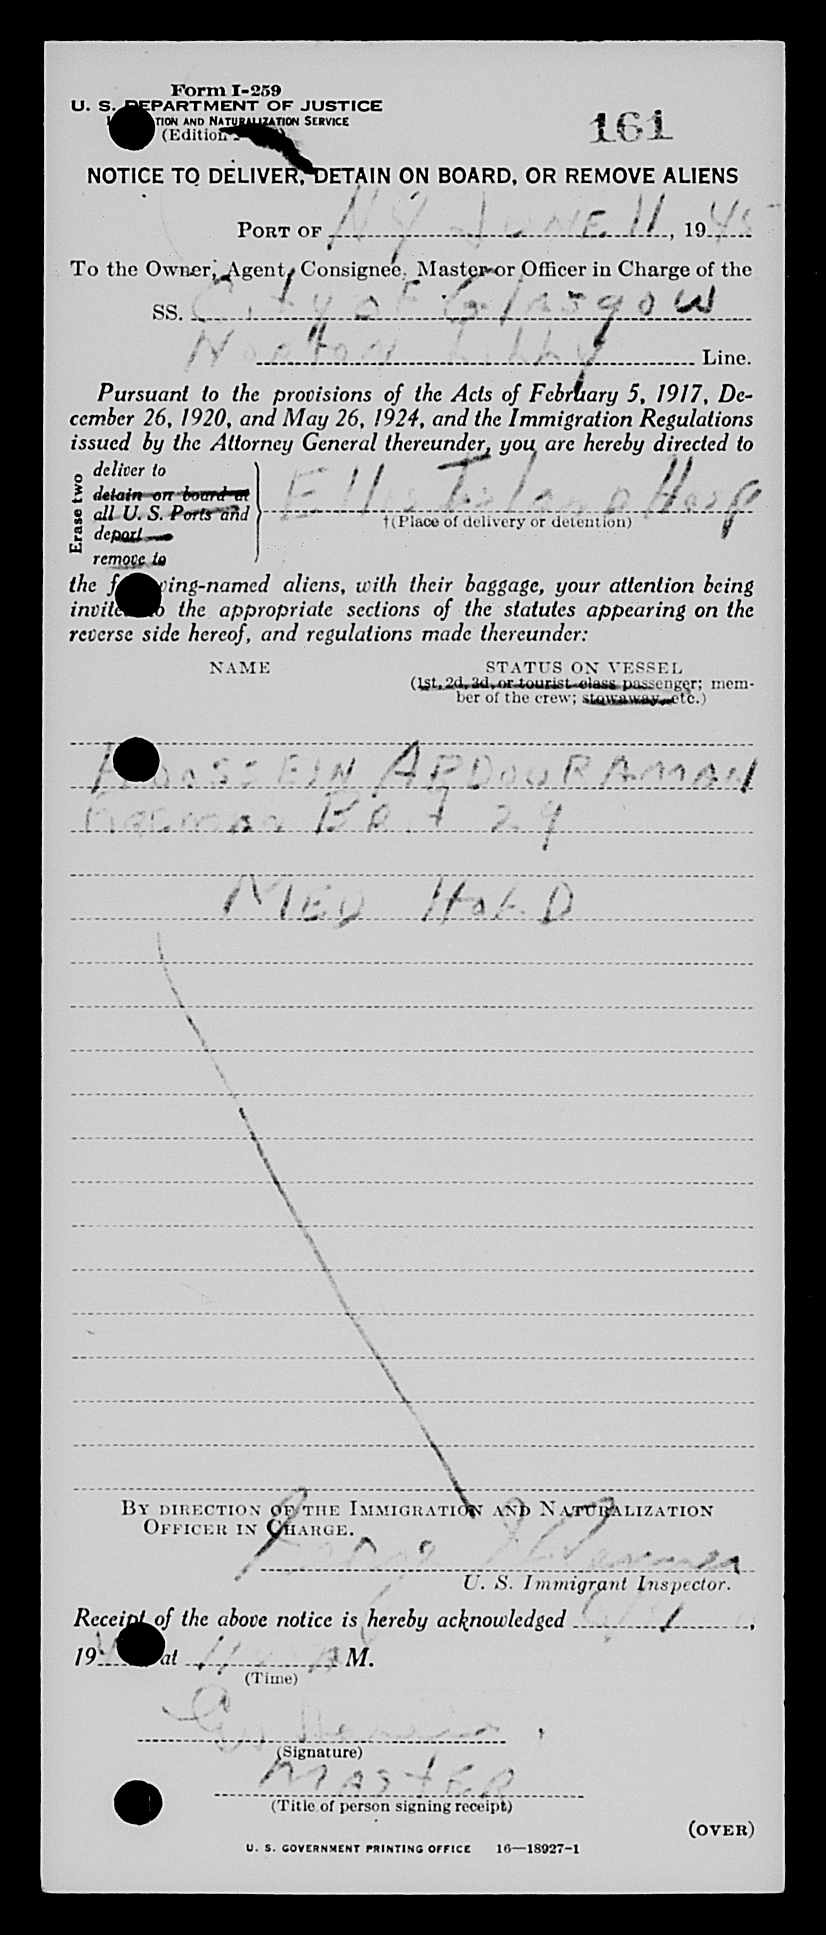 Form I-259
U. S. DEPARTMENT OF JUSTICE
TION AND NATURALIZATION SERVICE
(Edition
161
NOTICE TO DELIVER, DETAIN ON BOARD, OR REMOVE ALIENS
PORT OF NY JUNE 11, 1945
To the Owner, Agent, Consignee, Master or Officer in Charge of the
SS. City of Glasgow
Norton Lilly Line.
Pursuant to the provisions of the Acts of February 5, 1917, De-
cember 26, 1920, and May 26, 1924, and the Immigration Regulations
issued by the Attorney General thereunder, you are hereby directed to
Erase two
deliver to
detain on board at
all U. S. Ports and
deport
remove to
Ellis Island Hosp
†(Place of delivery or detention)
the following-named aliens, with their baggage, your attention being
invited to the appropriate sections of the statutes appearing on the
reverse side hereof, and regulations made thereunder:
NAME STATUS ON VESSEL
(1st, 2d, 3d, or tourist class passenger; mem-
ber of the crew; stowaway, etc.)
ABDOORAMAN
29
MED HOLD
BY DIRECTION OF THE IMMIGRATION AND NATURALIZATION
OFFICER IN CHARGE.
U. S. Immigrant Inspector.
Receipt of the above notice is hereby acknowledged
19 at 11 A M.
(Time)
(Signature)
MASTER
(Title of person signing receipt)
(OVER)
U. S. GOVERNMENT PRINTING OFFICE 16—18927-1